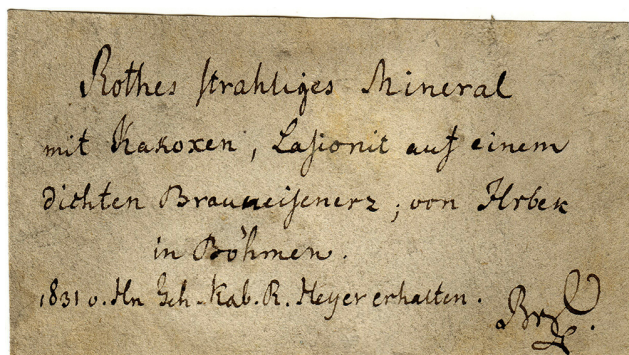 Rothes strahliges Mineral
mit Kakoxen, Lasionit auf einem
dichten Brauneisenerz; von Hrbek
in Böhmen.
1831 v. Hn Geh-Kab. R. Heyer erhalten.